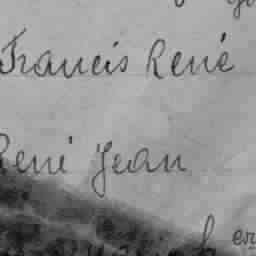 Francis René
René Jean